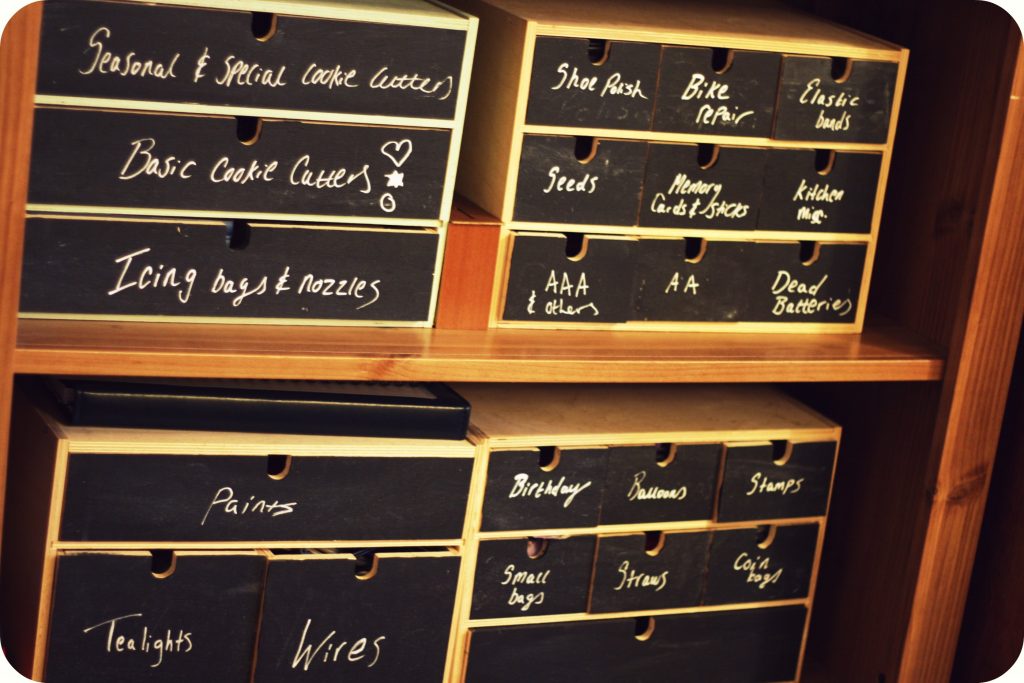 Seasonal & Special Cookie Cutters
Basic Cookie Cutters
Icing bags & nozzles
Shoe Polish
Bike
repair
Elastic
bands
Seeds
Memory
Cards & Sticks
Kitchen
Misc.
AAA
& others
AA
Dead
Batteries
Paints
Tealights
Wires
Birthday
Balloons
Stamps
Small
bags
Straws
Coin
bags